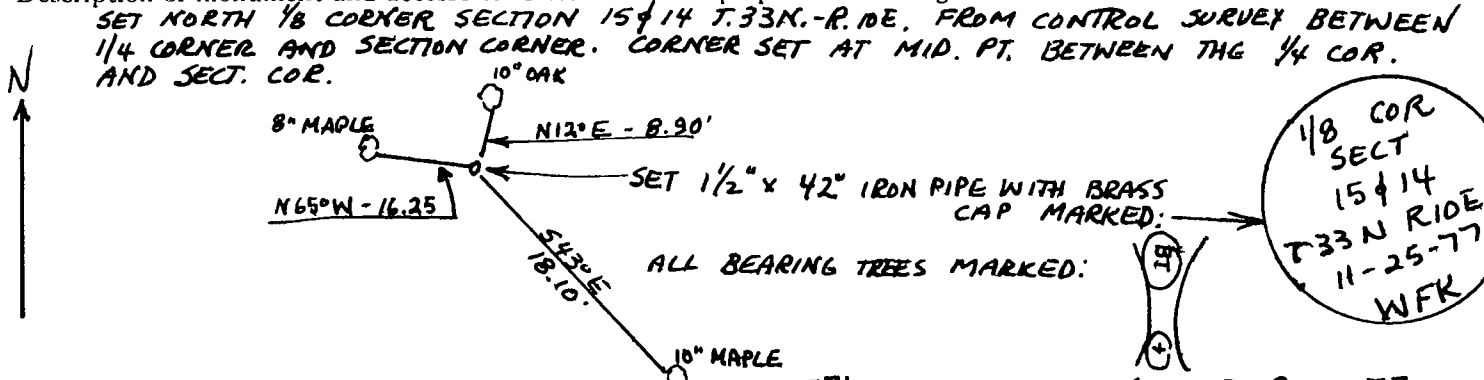 SET NORTH 1/8 CORNER SECTION 15 & 14 T.33N.-R.10E. FROM CONTROL SURVEY BETWEEN
1/4 CORNER AND SECTION CORNER. CORNER SET AT MID. PT. BETWEEN THE 1/4 COR.
AND SECT. COR.
N
10" OAK
8" MAPLE
N12°E - 8.90'
SET 1 1/2" x 42" IRON PIPE WITH BRASS
CAP MARKED:
N65°W - 16.25
S43°E
18.10'
ALL BEARING TREES MARKED:
BT
X
10" MAPLE
1/8 COR
SECT
15 & 14
T33N R10E
11-25-77
WFK